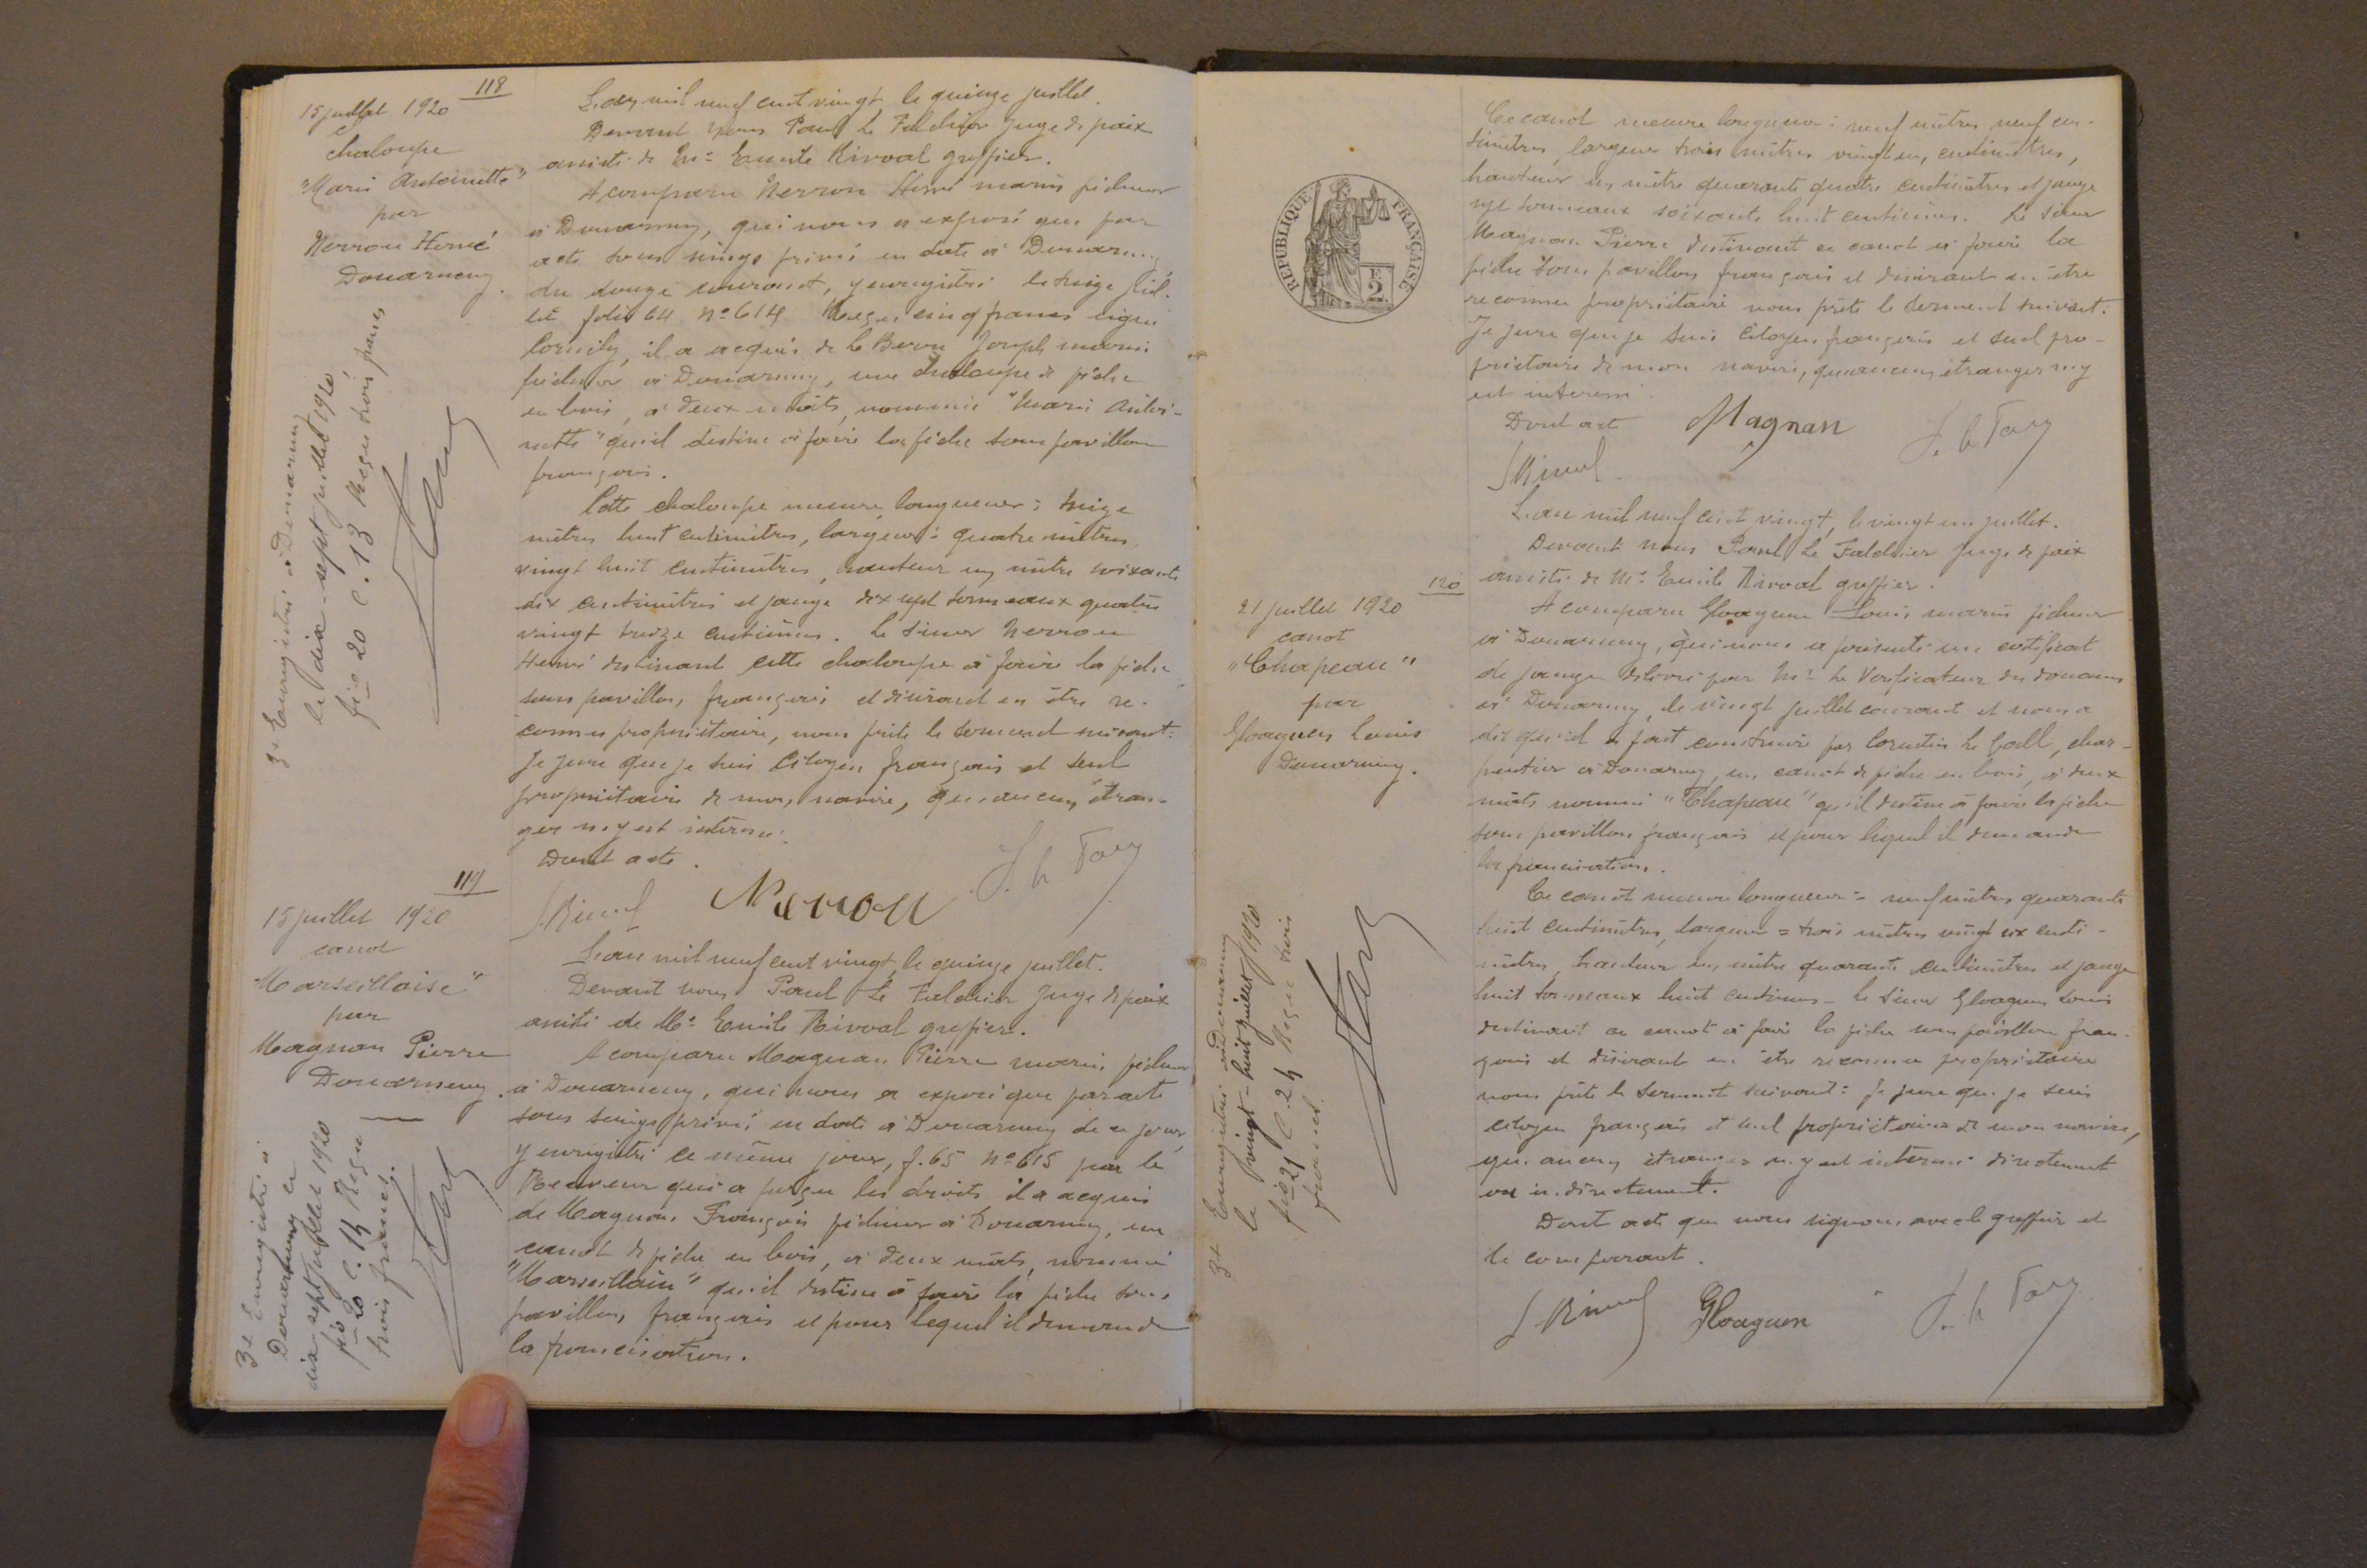 118
15 juillet 1920
chaloupe
"Marie Antoinette"
par
Nerrou Hervé
Douarnenez.
3+ Enregistré à Douarnenez
le dix-sept juillet 1920
fio 20 C. 13 Reçu trois francs
L'an mil neuf cent vingt, le quinze juillet.
Devant nous Paul Le Falchier Juge de paix
assisté de Me Emile Rivoal greffier.
A comparu Nerrou Hervé marin pêcheur
à Douarnenez, qui nous a exposé que par
acte sous seings privé en date à Douarnenez
du douze courant, y enregistré le treize juil-
let folio 64 No 614 Reçu cinq francs signé
Cornily, il a acquis de Le Berre Joseph marin
pêcheur à Douarnenez, une chaloupe de pêche
en bois, à deux mâts, nommée "Marie Antoi-
nette" qu'il destine à faire la pêche sous pavillon
français.
Cette chaloupe mesure longueur : treize
mètres huit centimètres, largeur : quatre mètres
vingt huit centimètres, hauteur un mètre soixante
dix centimètres et jauge dix sept tonneaux quatre
vingt treize centièmes. Le sieur Nerrou
Hervé destinant cette chaloupe à faire la pêche
sous pavillon français et désirant en être re-
connu propriétaire, nous prête le serment suivant :
Je jure que je suis Citoyen français et seul
propriétaire de mon navire, qu'aucun étran-
ger n'y est intéressé.
Dont acte.
Nerrou
119
15 juillet 1920
canot
"Marseillaise"
par
Magnan Pierre
Douarnenez.
3+ Enregistré à
Douarnenez le
dix-sept juillet 1920
fio 20 C. 14 Reçu
trois francs.
L'an mil neuf cent vingt, le quinze juillet.
Devant nous Paul Le Falchier Juge de paix
assisté de Me Emile Rivoal greffier.
A comparu Magnan Pierre marin pêcheur
à Douarnenez, qui nous a exposé que par acte
sous seings privé en date à Douarnenez de ce jour,
y enregistré ce même jour, f. 65 No 615 par le
Receveur qui a perçu les droits il a acquis
de Magnan François pêcheur à Douarnenez, un
canot de pêche en bois, à deux mâts, nommé
"Marseillaise" qu'il destine à faire la pêche sous
pavillon français et pour lequel il demande
la francisation.
RÉPUBLIQUE FRANÇAISE
2 F
Ce canot mesure longueur : neuf mètres neuf cen-
timètres, largeur trois mètres vingt un centimètres,
hauteur un mètre quarante quatre centimètres et jauge
sept tonneaux soixante huit centièmes. Le sieur
Magnan Pierre destinant ce canot à faire la
pêche sous pavillon français et désirant en être
reconnu propriétaire nous prête le serment suivant :
Je jure que je suis Citoyen français et seul pro-
priétaire de mon navire, qu'aucun étranger n'y
est intéressé.
Dont acte Magnan
120
21 juillet 1920
canot
"Chapeau"
par
Gloaguen Louis
Douarnenez.
3+ Enregistré à Douarnenez
le vingt-huit juillet 1920
fio 21 C. 24 Reçu trois
francs.
L'an mil neuf cent vingt, le vingt un juillet.
Devant nous Paul Le Falchier Juge de paix
assisté de Me Emile Rivoal greffier.
A comparu Gloaguen Louis marin pêcheur
à Douarnenez, qui nous a présenté un certificat
de jauge délivré par Mr Le Vérificateur des douanes
à Douarnenez, le vingt juillet courant et nous a
dit qu'il a fait construire par Corentin Le Gall, char-
pentier à Douarnenez, un canot de pêche en bois, à deux
mâts nommé "Chapeau" qu'il destine à faire la pêche
sous pavillon français et pour lequel il demande
la francisation.
Ce canot mesure longueur = neuf mètres quarante
huit centimètres, largeur = trois mètres vingt six centi-
mètres, hauteur un mètre quarante centimètres et jauge
huit tonneaux huit centièmes - Le sieur Gloaguen Louis
destinant ce canot à faire la pêche sous pavillon fran-
çais et désirant en être reconnu propriétaire
nous prête le serment suivant : Je jure que je suis
citoyen français et seul propriétaire de mon navire,
qu'aucun étranger n'y est intéressé directement
ou indirectement.
Dont acte que nous signons avec le greffier et
le comparant.
Gloaguen